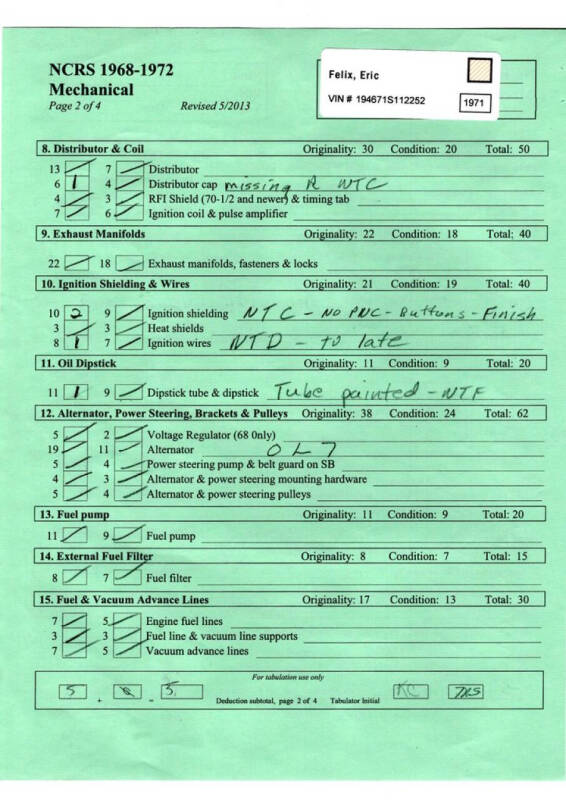 NCRS 1968-1972
Mechanical
Page 2 of 4 Revised 5/2013
Felix, Eric
VIN # 194671S112252 1971
8. Distributor & Coil Originality: 30 Condition: 20 Total: 50
13 7 Distributor
6 1 4 Distributor cap missing R NTC
4 3 RFI Shield (70-1/2 and newer) & timing tab
7 6 Ignition coil & pulse amplifier
9. Exhaust Manifolds Originality: 22 Condition: 18 Total: 40
22 18 Exhaust manifolds, fasteners & locks
10. Ignition Shielding & Wires Originality: 21 Condition: 19 Total: 40
10 2 9 Ignition shielding NTC - NO PNC - Buttons - Finish
3 3 Heat shields
8 1 7 Ignition wires NTD - to late
11. Oil Dipstick Originality: 11 Condition: 9 Total: 20
11 1 9 Dipstick tube & dipstick Tube painted - NTF
12. Alternator, Power Steering, Brackets & Pulleys Originality: 38 Condition: 24 Total: 62
5 2 Voltage Regulator (68 Only)
19 11 Alternator O L 7
5 4 Power steering pump & belt guard on SB
4 3 Alternator & power steering mounting hardware
5 4 Alternator & power steering pulleys
13. Fuel pump Originality: 11 Condition: 9 Total: 20
11 9 Fuel pump
14. External Fuel Filter Originality: 8 Condition: 7 Total: 15
8 7 Fuel filter
15. Fuel & Vacuum Advance Lines Originality: 17 Condition: 13 Total: 30
7 5 Engine fuel lines
3 3 Fuel line & vacuum line supports
7 5 Vacuum advance lines
For tabulation use only
5 + = 5 Deduction subtotal, page 2 of 4 Tabulator Initial KC